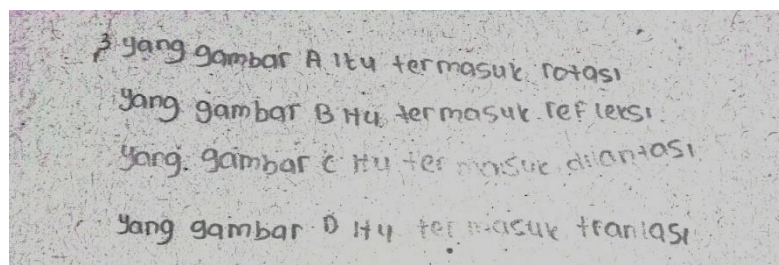 3 yang gambar A itu termasuk rotasi
yang gambar B itu termasuk refleksi.
yang. gambar C itu termasuk dilantasi
yang gambar D itu termasuk tranlasi